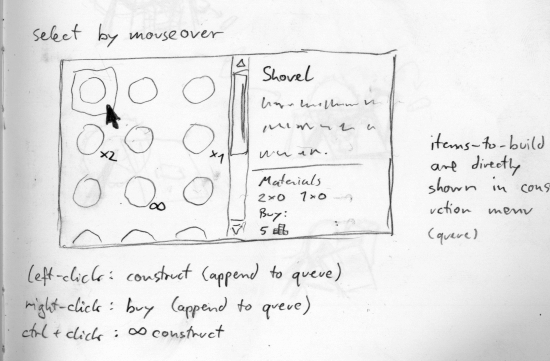 select by mouseover
Shovel
x2
x1
∞
Materials
2×0 1×0
Buy:
5
items-to-build
are directly
shown in cons
uction menu
(queue)
left-click: construct (append to queue)
right-click: buy (append to queue)
ctrl + click: ∞ construct